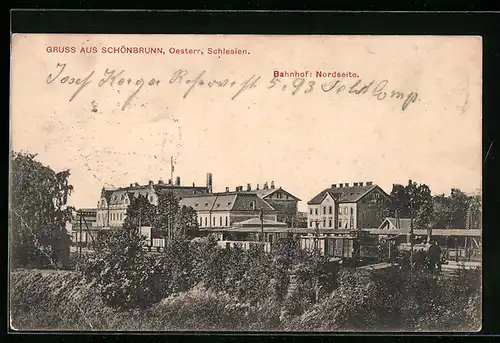 GRUSS AUS SCHÖNBRUNN, Oesterr. Schlesien.
Bahnhof: Nordseite.
Josef 5/93 Feld Comp.